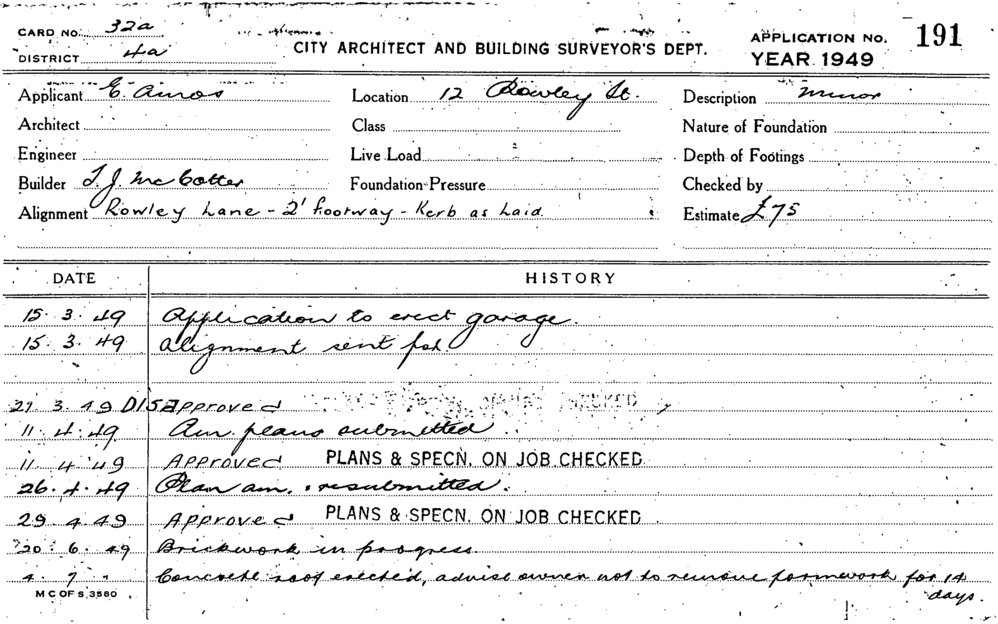 CARD NO. 32a
DISTRICT 4a
CITY ARCHITECT AND BUILDING SURVEYOR'S DEPT.
APPLICATION NO. 191
YEAR 1949
Applicant E. Amos Location 12 Rowley St. Description Minor
Architect Class Nature of Foundation
Engineer Live Load Depth of Footings
Builder T. J. McCotter Foundation Pressure Checked by
Alignment Rowley Lane - 2' footway - Kerb as Laid. Estimate £75
DATE HISTORY
15. 3. 49 Application to erect garage.
15. 3. 49 Alignment sent for.
29. 3. 49 DISApproved
11. 4. 49 Am. plans submitted
11. 4. 49 Approved PLANS & SPECN. ON JOB CHECKED
26. 4. 49 Plan am. resubmitted.
29. 4. 49 Approved PLANS & SPECN. ON JOB CHECKED
20. 6. 49 Brickwork in progress.
4. 7. " Concrete roof erected, advise owner not to remove formwork for 14
days.
M C OF S 3560